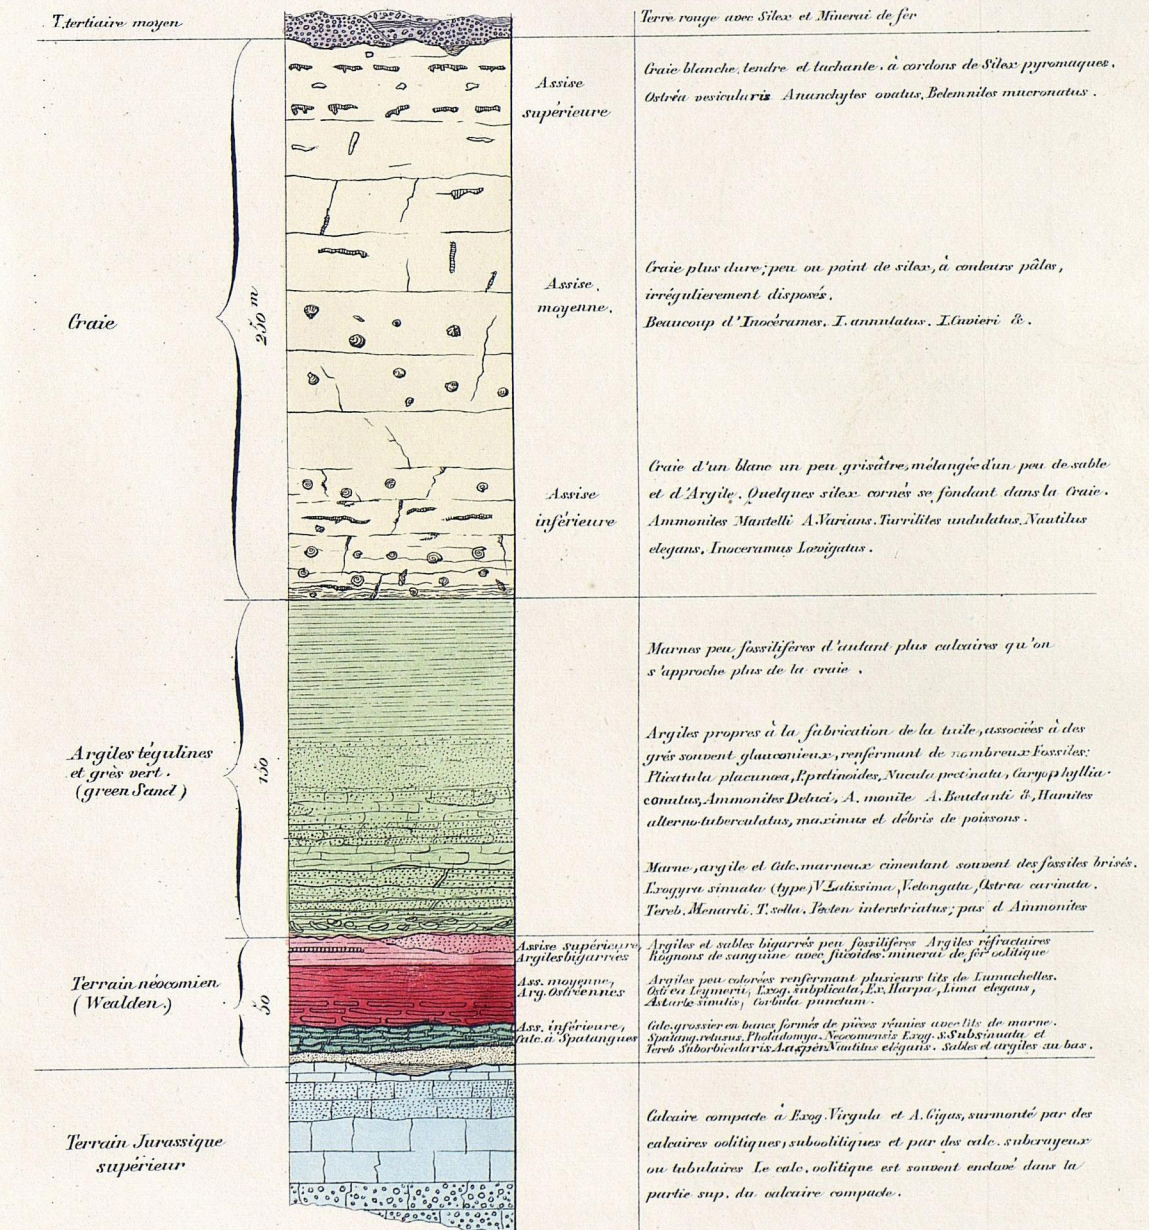 T. tertiaire moyen
Terre rouge avec Silex et Minerai de fer
Craie
250 m
Assise
supérieure
Craie blanche, tendre et tachante. à cordons de Silex pyromaques.
Ostréa vesicularis Ananchytes ovatus, Belemnites mucronatus.
Assise.
moyenne.
Craie plus dure; peu ou point de silex, à couleurs pâles,
irrégulierement disposés.
Beaucoup d'Inocérames. I. annulatus. I. Cuvieri &.
Assise
inférieure
Craie d'un blanc un peu grisâtre, mélangée d'un peu de sable
et d'Argile. Quelques silex cornés se fondant dans la Craie.
Ammonites Mantelli A. Varians. Turrilites undulatus. Nautilus
elegans, Inoceramus Lœvigatus.
Argiles tégulines
et grès vert.
(green Sand)
150
Marnes peu fossilifères d'autant plus calcaires qu'on
s'approche plus de la craie.
Argiles propres à la fabrication de la tuile, associées à des
grés souvent glauconieux, renfermant de nombreux Fossiles:
Plicatula placunœa, P. pectinoides, Nucula pectinata, Caryophyllia
conulus, Ammonites Deluci, A. monile A. Beudanti &, Hamites
alterno-tuberculatus, maximus et débris de poissons.
Marne, argile et Calc. marneux cimentant souvent des fossiles brisés.
Exogyra sinuata (type) V. Latissima, V. elongata, Ostrea carinata.
Tereb. Menardi. T. sella. Pecten interstriatus; pas d Ammonites
Terrain néocomien
(Wealden.)
50
Assise supérieure,
Argiles bigarrées
Argiles et sables bigarrés peu fossilifères Argiles réfractaires
Rognons de sanguine avec fucoides. minerai de fer oolitique
Ass. moyenne,
Arg. Ostréennes
Argiles peu colorées renfermant plusieurs lits de Lumachelles.
Ostrea Leymerii, Exog. subplicata, Ex. Harpa, Lima elegans,
Astarte similis, Corbula punctum.
Ass. inférieure,
Calc. à Spatangues
Calc. grossier en bancs formés de pièces réunies avec lits de marne.
Spatang. retusus. Pholadomya. Neocomensis Exog. S. Subsinuata et
Tereb Suborbicularis A. asper Nautilus elégans. Sables et argiles au bas.
Terrain Jurassique
supérieur
Calcaire compacte à Exog. Virgula et A. Gigas, surmonté par des
calcaires oolitiques; suboolitiques et par des calc. subcrayeux
ou tubulaires Le calc. oolitique est souvent enclavé dans la
partie sup. du calcaire compacte.